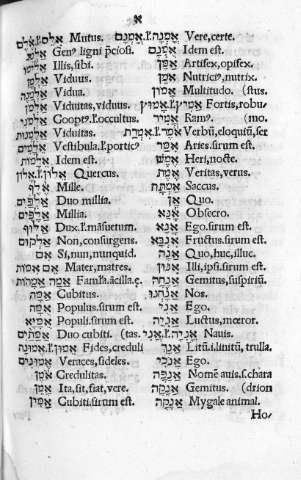 א
אִלֵּם.l.אֵלֶם Mutus.
אַלְמֻגִּים Genꝰ ligni p̄ciosi.
אֵלֵּין Illis, sibi.
אַלְמָן Viduus.
אַלְמָנָה Vidua.
אַלְמֹן Viduitas, viduus.
אַלְמֹנִי Coopꝰ.l.occultus.
אַלְמְנוּת Viduitas.
Vestibula.l.porticꝰ
אֵלַמּוֹת Idem est.
אַלּוֹן.l.אֵלוֹן Quercus.
אֶלֶף Mille.
אַלְפַּיִם Duo millia.
אֲלָפִים Millia.
אַלּוּף Dux.l.masuetum.
אַלְקוּם Non, consurgens.
אִם Si, nun, nunquid.
אֵם אִמּוֹת Mater, matres.
אָמָה אֲמָהוֹת Famľa. ācilla. ę.
אַמָּה Cubitus.
אֻמָּה Populus. sirum est.
Populi. sirum est.
אַמָּתַיִם Duo cubiti. (tas.
אֱמוּנָה.l.אֵמוּן Fides, creduli
אֱמוּנִים Veraces, fideles.
אֹמֶן Credulitas.
אָמֵן Ita, sit, fiat, vere.
אַמִּין Cubiti, sirum est.
אָמְנָה.l.אָמְנָם Vere, certe.
אֻמְנָם Idem est.
אָמָּן Artifex, opifex.
אֹמֵן Nutricꝰ, nutrix.
אָמוֹן Multitudo. (stus.
אַמִּיץ.l.אָמוּץ Fortis, robu
אָמִיר Ramꝰ. (mo.
Verbū, eloquiū, ser
אִמַּר Aries. sirum est.
אֶמֶשׁ Heri, nocte.
אֱמֶת Veritas, verus.
אַמְתַּחַת Saccus.
אָן Quo.
אָנָּא Obsecro.
אֲנָא Ego. sirum est.
Fructus. sirum est.
אָנָה Quo, huc, illuc.
אִנּוּן Illi, ipsi. sirum est.
אֲנָחָה Gemitus, suspiriū.
אֲנַחְנוּ Nos.
אֲנִי Ego.
אֲנִיָּה Luctus, mœror.
אֳנִיָּה.l.אֳנִי Nauis.
אֲנָךְ Litū.i.linitū, trulla.
אָנֹכִי Ego.
אֲנָפָה Nomē auis. s. chara
אֲנָקָה Gemitus. (drion
אֲנָקָה Mygale animal.
Ho/